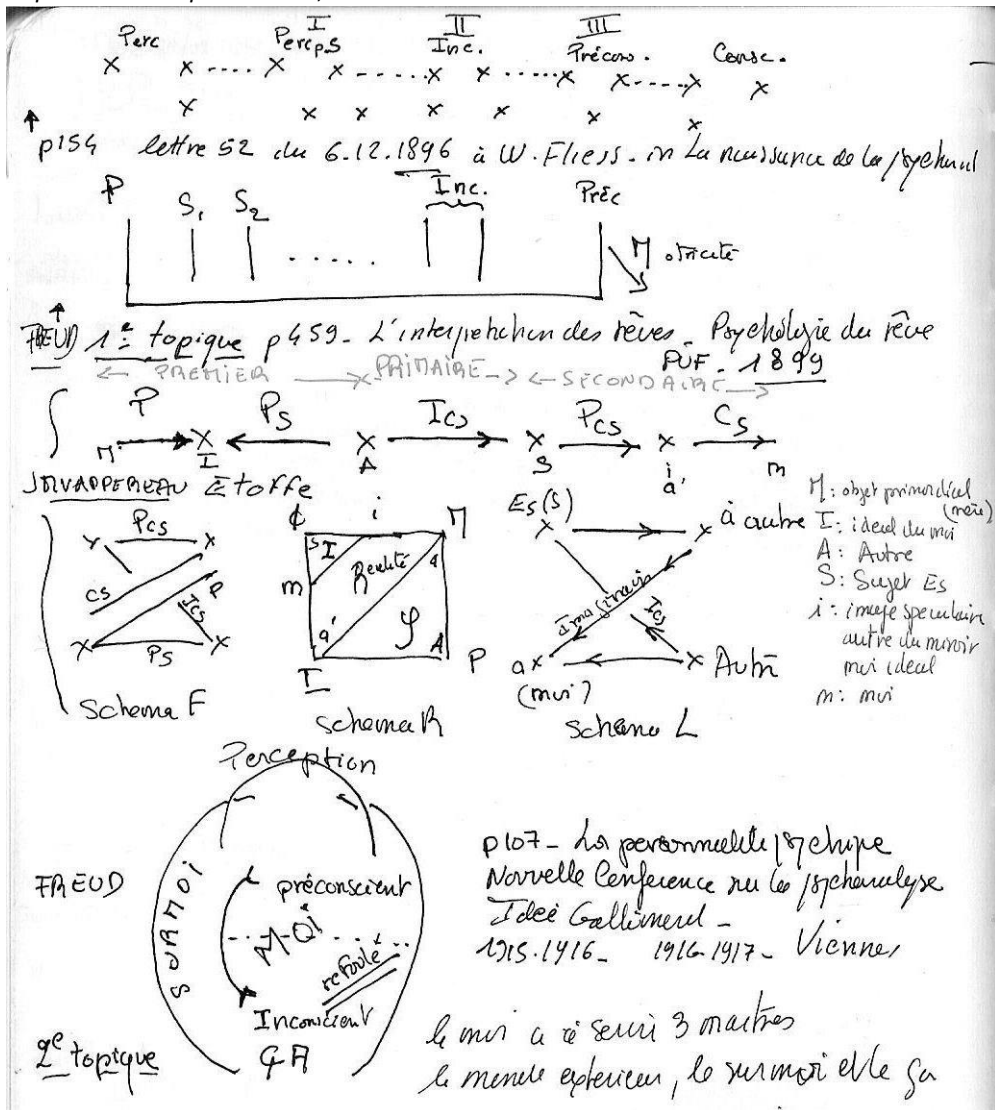 I II III
Perc Percp.S Inc. Précons. Consc.
p154 lettre 52 du 6.12.1896 à W. Fliess. in La naissance de la psychanal
P S1 S2 ..... Inc. Préc
M otricité
FREUD 1e topique p459_ L'interprétation des rêves_ Psychologie du rêve
PUF_ 1899
PREMIER PRIMAIRE SECONDAIRE
P Ps Ics Pcs Cs
M I A S i a' m
JMVAPPEREAU Etoffe
Pcs
Cs P
Ics
Ps
Schema F
i M
S I a
m Réalité
a' A
I P
schema R
Es (S) à autre
Imaginaire
Ics
a (moi) Autre
schema L
M: objet primordial (mère)
I: idéal du moi
A: Autre
S: Sujet Es
i: image spéculaire
autre du miroir
moi idéal
m: moi
Perception
FREUD
SURMOI
préconscient
MOI
refoulé
Inconscient
ÇA
2e topique
p107_ La personnalité psychique
Nouvelle Conférence sur la psychanalyse
Idée Gallimard_
1915.1916_ 1916-1917_ Viennes
le moi a à servir 3 maitres
le monde extérieur, le surmoi et le ça